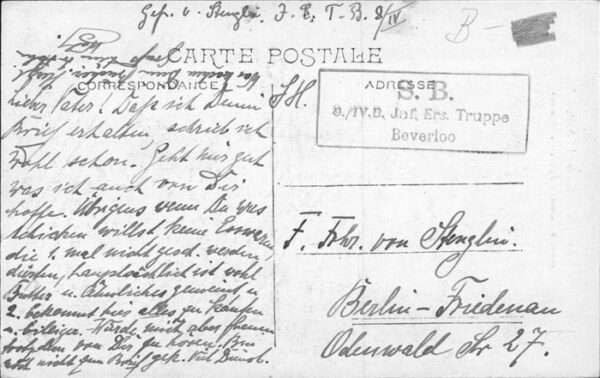 Gefr. v. Stenglin. J. E. T. B. 9/IV
B —
CARTE POSTALE
CORRESPONDANCE
ADRESSE
S. B.
9./IV.B. Inf. Ers. Truppe
Beverloo
Lieber Vater! Daß ich Deinen
Brief erhalten, schrieb ich
wohl schon. Geht mir gut
was ich auch von Dir
hoffe. Übrigens wenn Du was
schicken willst keine Esswaren,
die 1. mal nicht gesch. werden
dürfen, hauptsächlich ist wohl
Butter u. Ähnliches gemeint u.
2. bekommt hier alles zu kaufen
u. billiger. Würde mich aber freuen
trotzdem von Dir zu hören. Bin
nicht zum Brief gek. Viel
S. H.
F. Frhr. von Stenglin.
Berlin-Friedenau
Odenwald Str 27.